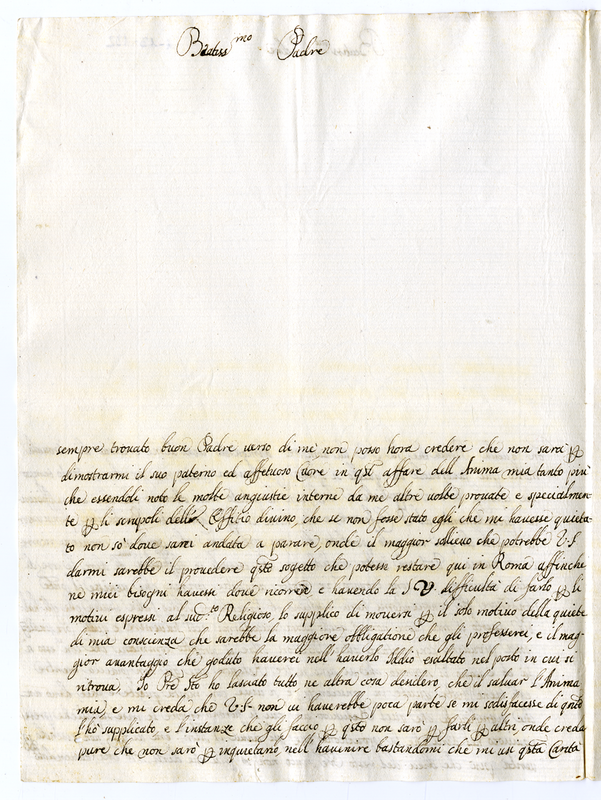 Beatiss.mo Padre
sempre trovato buon Padre verso di me non posso hora credere che non sarà p
dimostrarmi il suo paterno ed affetuoso Cuore in qsto affare dell'Anima mia tanto più
che essendoli note le molte angustie interne da me altre volte provate e specialmen
te p li scrupoli dell' Offitio divino, che se non fosse stato egli che mi havesse quieta
to non sò dove sarei andata a parare, onde il maggior sollievo che potrebbe V.S.
darmi sarebbe il provedere qsto sogetto che potessi restare qui in Roma affinche
ne miei bisogni havessi dove ricorrere e havendo la S.V. difficultà di farlo p li
motivi espressi al sud.to Religioso, lo supplico di moversi p il solo motivo della quiete
di mia conscienza che sarebbe la maggiore obligatione che gli professerei, e il mag
gior avantaggio che goduto haverei nell'haverlo Iddio esaltato nel posto in cui si
ritrova. Io Pre Sto ho lasciato tutto ne altra cosa desidero, che il salvar l'Anima
mia, e mi creda che V.S. non vi haverebbe poca parte se mi sodisfacesse di qnto
l'hò supplicato, e l'instanze che gli faccio p qsto non sarò p farli p altri, onde creda
pure che non sarò p inquietarlo nell'havenire bastandomi che mi usi qsta Carità